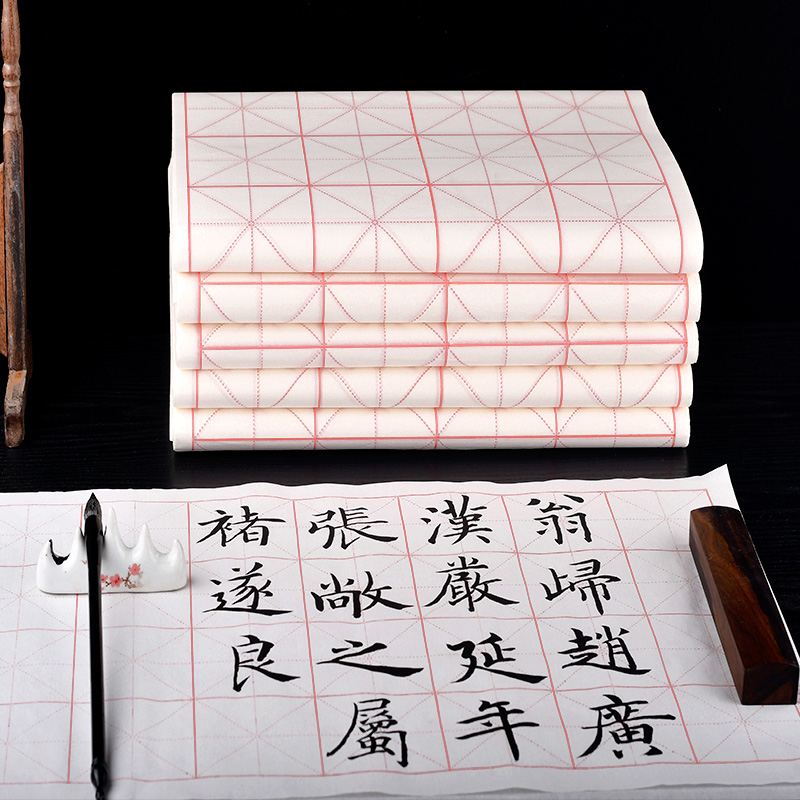 翁歸趙廣
漢嚴延年
張敞之屬
褚遂良